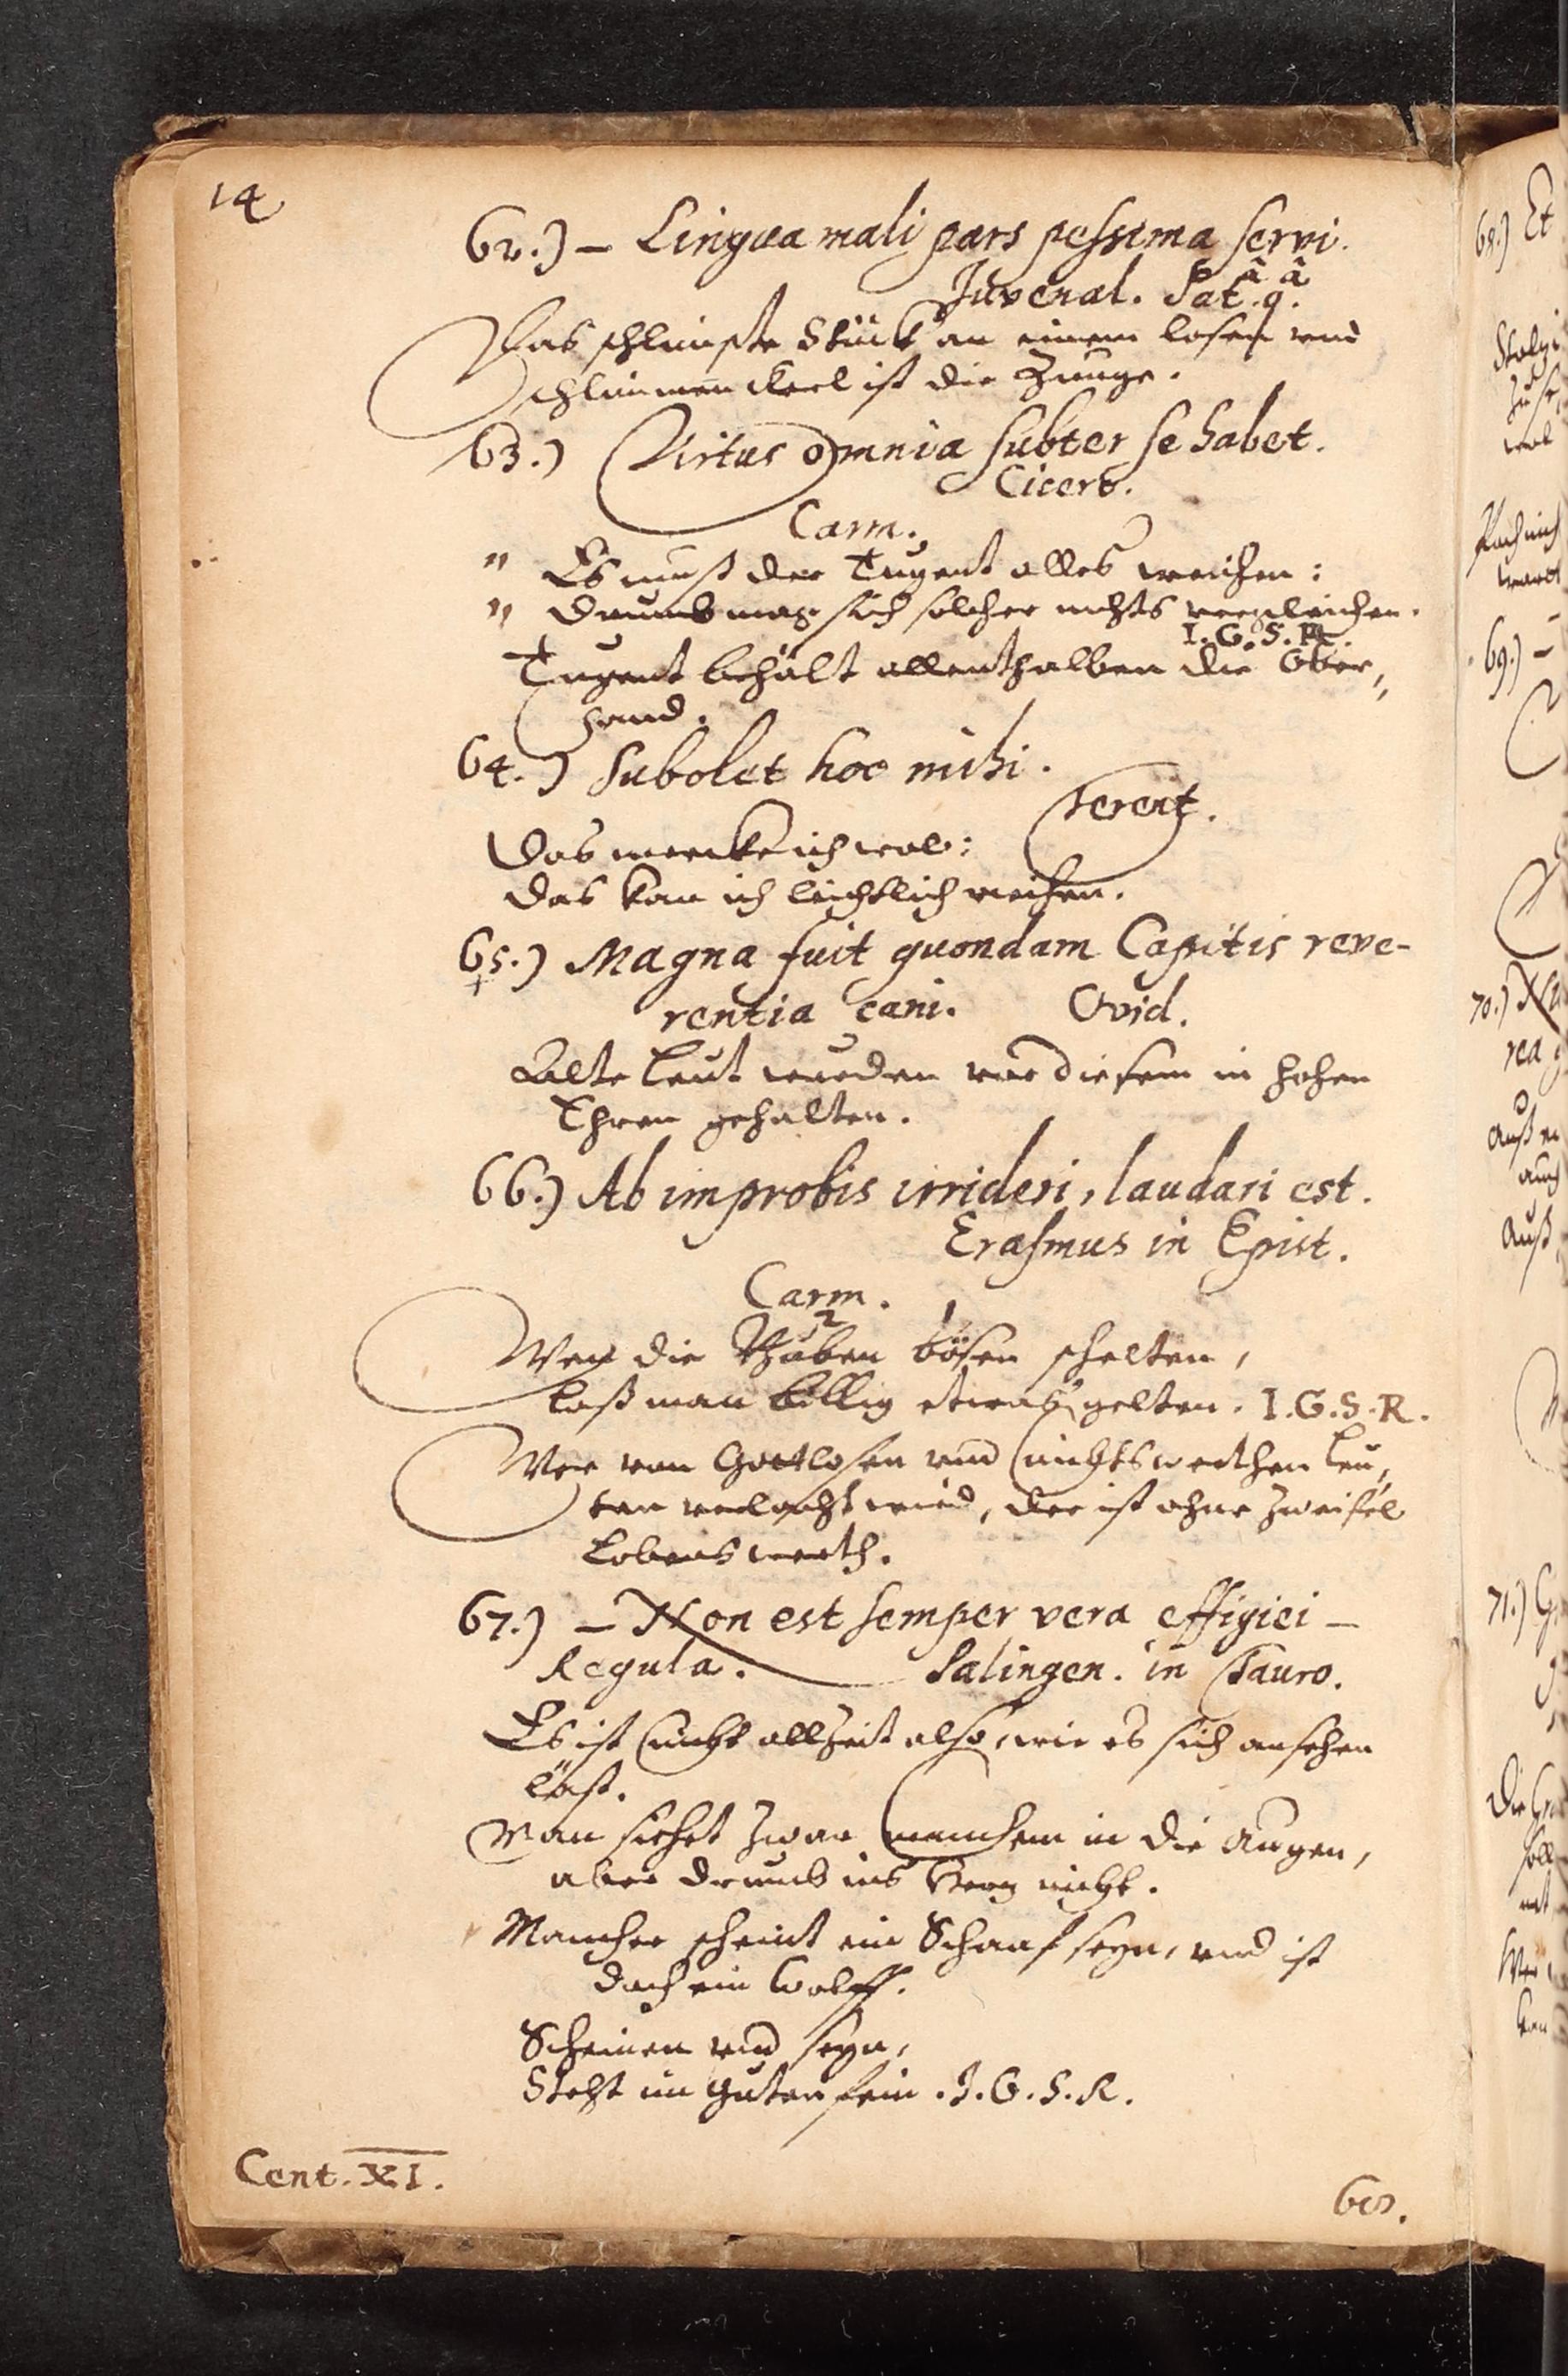 14
62.) – Lingua mali pars pessima servi.
Juvenal. Sat.â 9.â
Das schlimste Stück an einem losen vnd
schlimmen Kerl ist die Zunge.
63.) Virtus omnia subter se habet.
Cicero.
Carm.
" Es muß der Tugent alles weichen:
" Drumb mag sich solcher nichts vergleichen.
I. G. S. R.
Tugent behält allenthalben die Ober„
hand.
64.) Subolet hoc mihi.
Terent.
Das mercke ich wol:
Das kan ich leichtlich riechen.
65.) Magna fuit quondam Capitis reve-
rentia cani. Ovid.
Alte Leut wurden vor diesem in hohen
Ehren gehalten.
66.) Ab improbis irrideri, laudari est.
Erasmus in Epist.
Carm.
2 1
Wen die Buben bösen schelten,
Laß man billig etwaß gelten. I. G. S. R.
Wer von Gottlosen vnd nichtswerthen Leu„
ten verlacht wird, der ist ohne Zweifel
Lobens werth.
67.) – Non est semper vera effigiei –
Regula. Palingen. in Tauro.
Es ist nicht allzeit also, wie es sich ansehen
läst.
Man siehet zwar manchem in die Augen,
aber drumb ins Herz nicht.
Mancher scheint ein Schaaf seyn, vnd ist
doch ein Wolff.
Scheinen vnd seyn,
Steht im guten fein. I. G. S. R.
Cent. XI.
68.